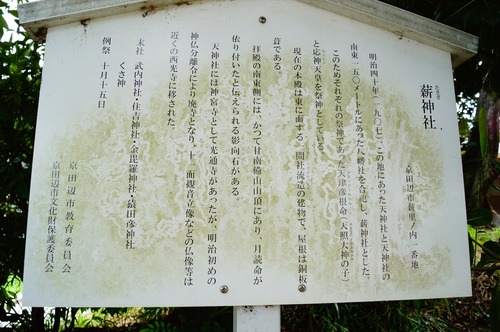 薪神社
たきぎ
京田辺市薪里ノ内一番地
明治四十年（一九〇七）、この地にあった天神社と天神社の
南東一五〇メートルにあった八幡社を合祀し、薪神社とした。
このためそれぞれの祭神であった天津彦根命（天照大神の子）
と応神天皇を祭神としている。
現在の本殿は東に面する一間社流造の建物で、屋根は銅板
葺である。
拝殿の南東側には、かつて甘南備山山頂にあり、月読命が
依り付いたと伝えられる影向石がある。
天神社には神宮寺として光通寺があったが、明治初めの
神仏分離令により廃寺となり、十一面観音立像などの仏像等は
近くの西光寺に移された。
末社 武内神社・住吉神社・金毘羅神社・猿田彦神社
くさ神
例祭 十月十五日
京田辺市教育委員会
京田辺市文化財保護委員会